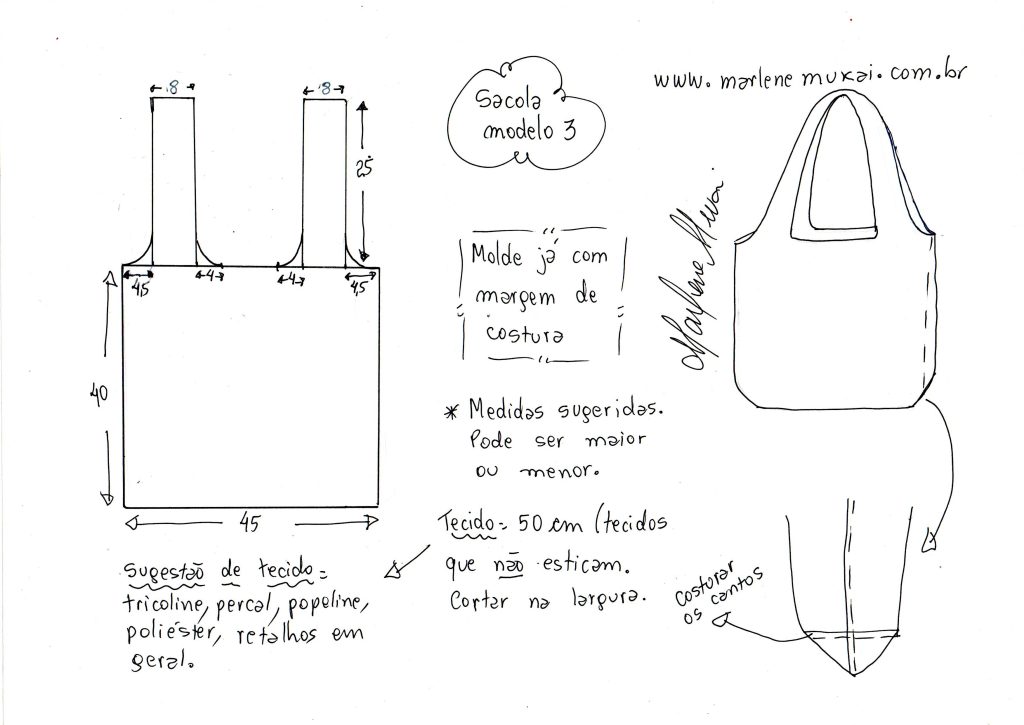 www.marlenemukai.com.br
Sacola
modelo 3
8
8
25
4,5
4
4
4,5
40
45
Molde já com
margem de
costura
Marlene Mukai
* Medidas sugeridas.
Pode ser maior
ou menor.
Tecido = 50 cm (tecidos
que não esticam.
Cortar na largura.
Sugestão de tecido =
tricoline, percal, popeline,
poliéster, retalhos em
geral.
costurar
os cantos